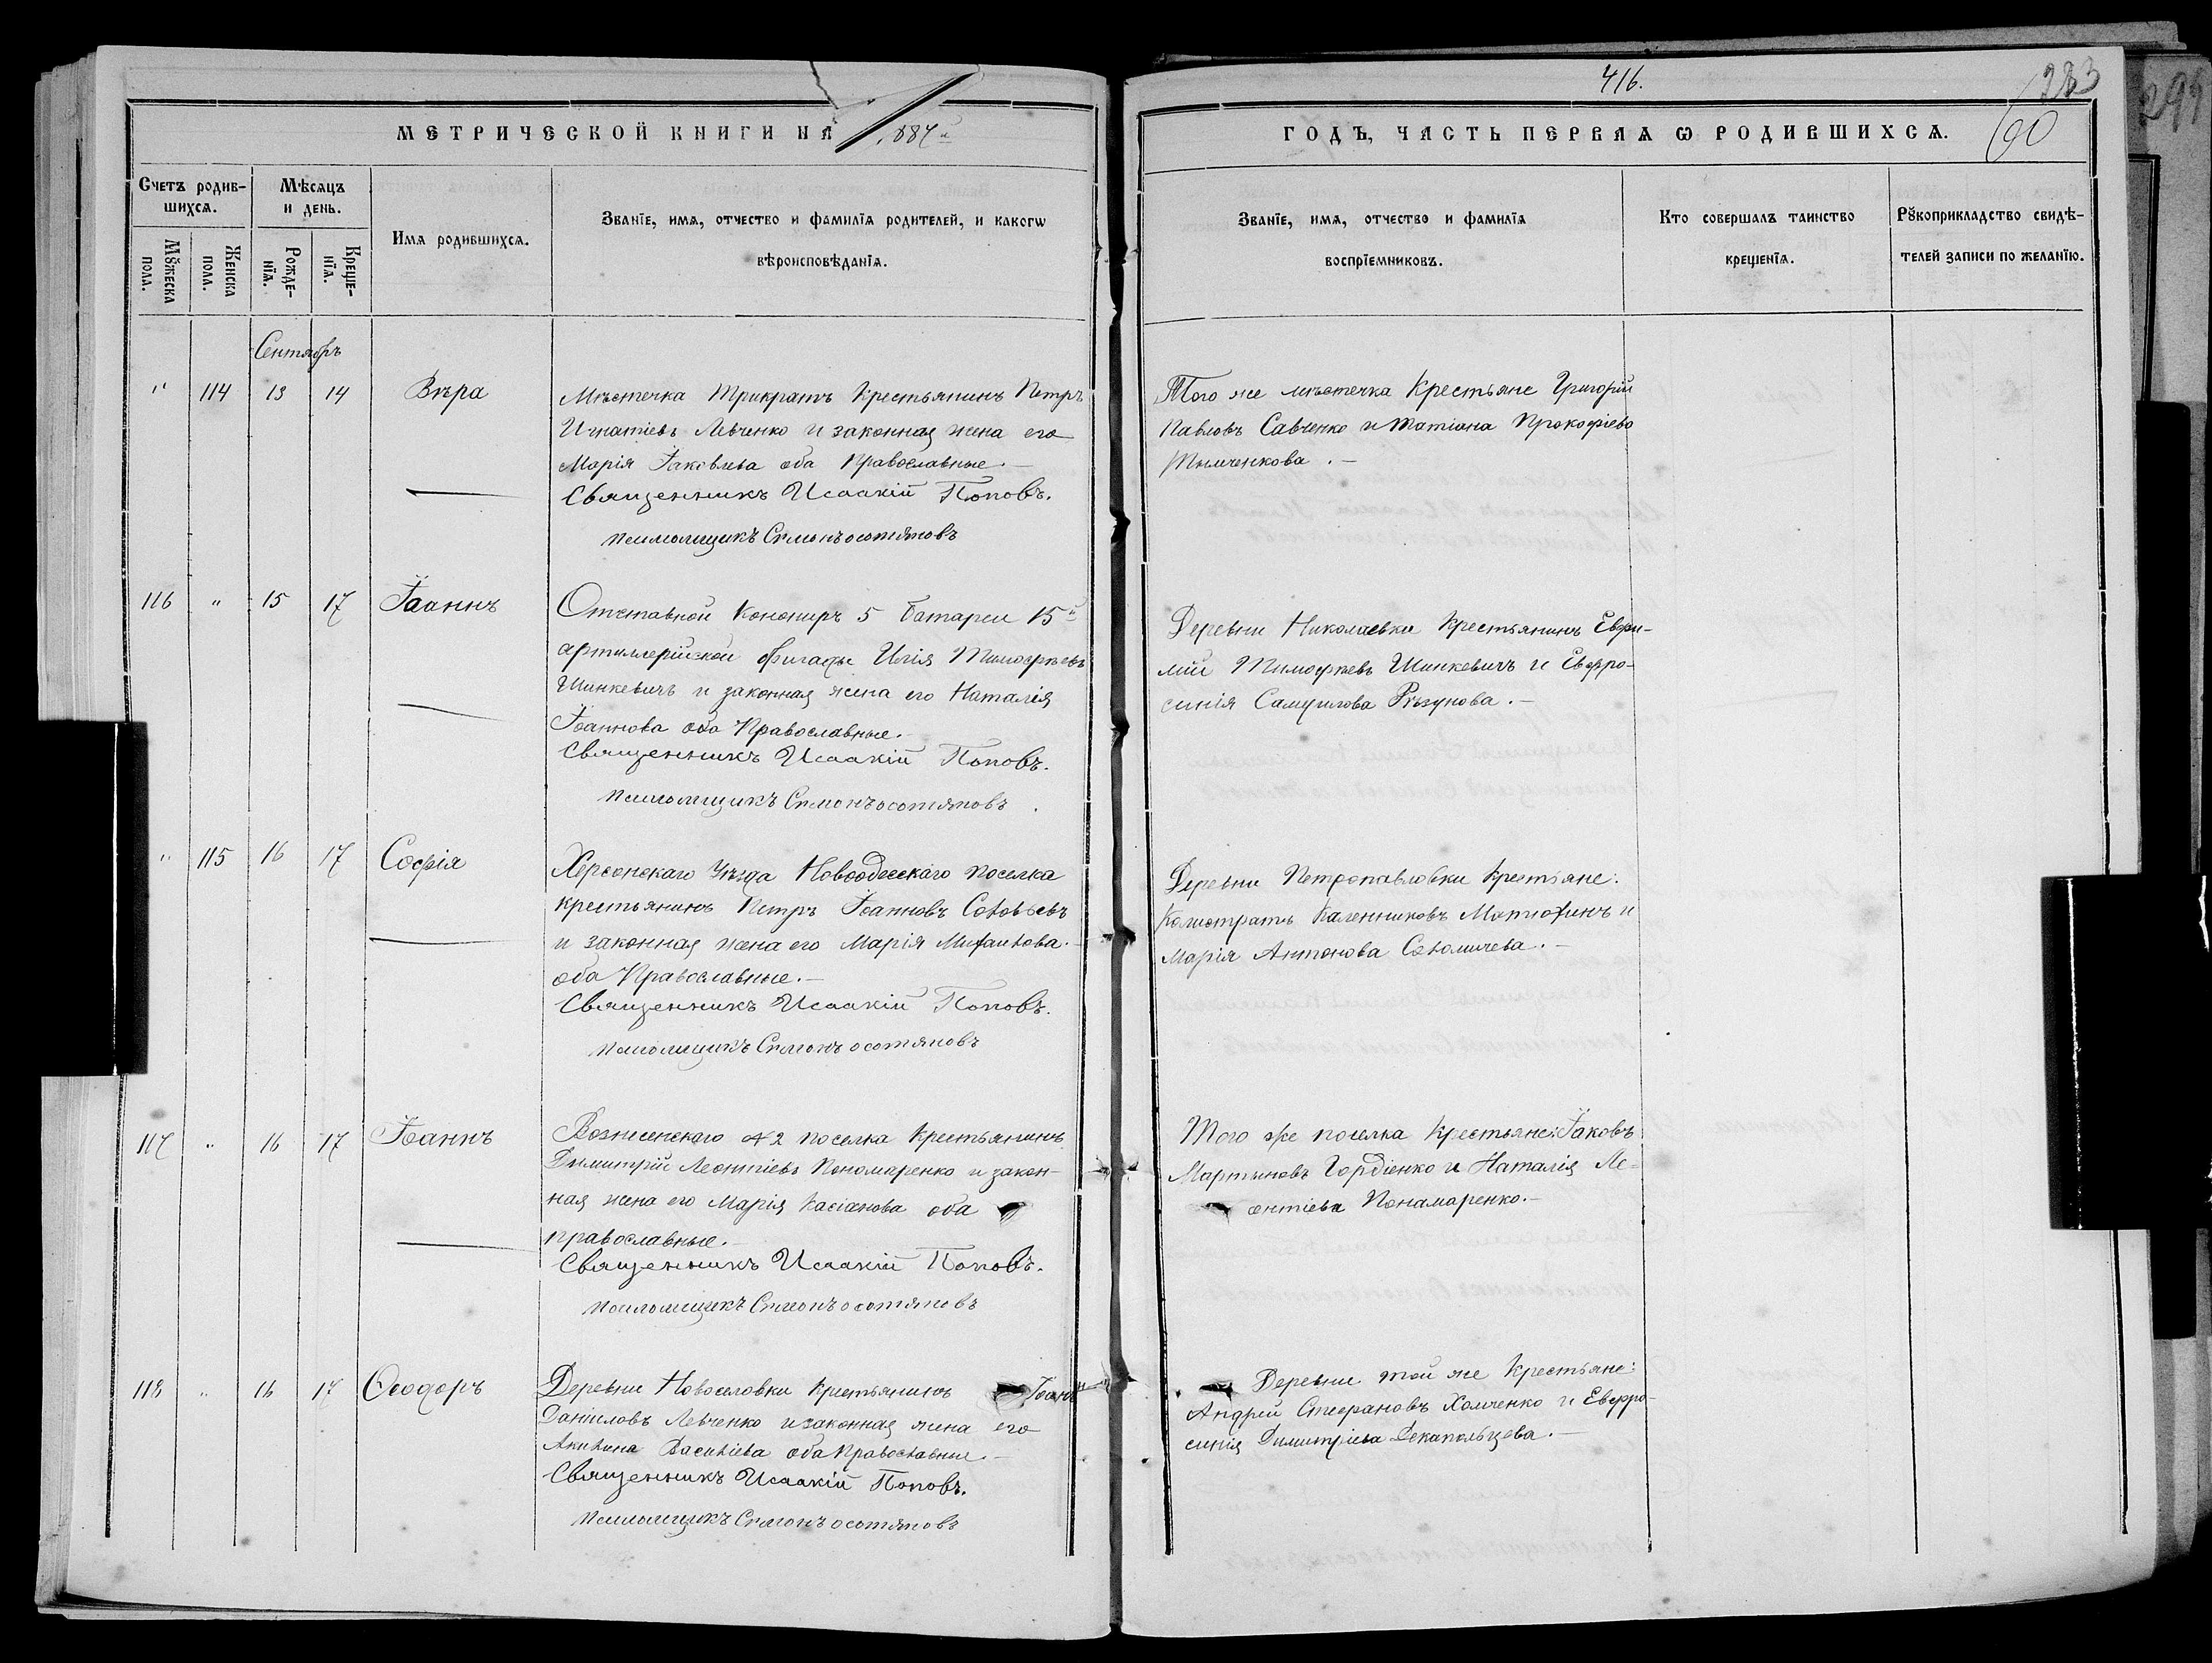 416.
283
60
299
МЕТРИЧЕСКОЙ КНИГИ НА 1887й
ГОДЪ, ЧАСТЬ ПЕРВАѦ Ѡ РОДИВШИХСѦ.
Счетъ родив-
шихсѧ.
Мѣсяцъ
и день.
Мꙋжеска
пола.
Женска
пола.
Рожде-
нїѧ.
Креще-
нїѧ.
Имѧ родившихсѧ.
Званїе, имѧ, отчество и фамилїѧ родителей, и какогѡ
вѣроисповѣданїѧ.
Званїе, имѧ, отчество и фамилїѧ
воспрїемниковъ.
Кто совершалъ таинство
крещенїѧ.
Рꙋкоприкладство свидѣ-
телей записи по желанїю.
Сентябрь
" 114 13 14 Вѣра
Мѣстечка Трикратъ Крестьянинъ Петръ
Игнатіевъ Левченко и законная жена его
Марія Іаковлева оба Православные.—
Священникъ Исаакій Поповъ.
Псаломщикъ Симонъ
Того же мѣстечка Крестьяне Григорій
Павловъ Савченко и Татіана Прокофіева
116 " 15 17 Іоаннъ
Отставной Конониръ 5 Батареи 15й
артиллерійской бригады Илія Тимофѣевъ
Шинкевичъ и законная жена его Наталія
Іоаннова оба Православные.
Священникъ Исаакій Поповъ.
Псаломщикъ Симонъ
Деревни Николаевки Крестьянинъ Ефи-
мій Тимофѣевъ Шинкевичъ и Евфро-
синія Самуилова Рѣзунова.—
" 115 16 17 Софія
Херсонскаго Уѣзда Новоодесскаго поселка
крестьянинъ Петръ Іоанновъ Соловьевъ
и законная жена его Марія Михаилова.
оба Православные.—
Священникъ Исаакій Поповъ.
Псаломщикъ Симонъ
Деревни Петропавловки Крестьяне:
Калистратъ Каленниковъ и
Марія Антонова
117 " 16 17 Іоаннъ
Вознесенскаго № 2 поселка Крестьянинъ
Димитрій Леонтіевъ Пономаренко и закон-
ная жена его Марія Касіанова оба
православные.—
Священникъ Исаакій Поповъ.
Псаломщикъ Симонъ
Того же поселка Крестьяне: Іаковъ
Мартыновъ Гордіенко и Наталія Ле-
онтіева Понамаренко.—
118 " 16 17 Ѳеодоръ
Деревни Новоселовки Крестьянинъ Іоаннъ
Даніиловъ Левченко и законная жена его
Акилина Василіева оба Православные.—
Священникъ Исаакій Поповъ.
Псаломщикъ Симонъ
Деревни той же Крестьяне:
Андрей Стефановъ Холченко и Евфро-
синія Димитріева Декапольцева.—